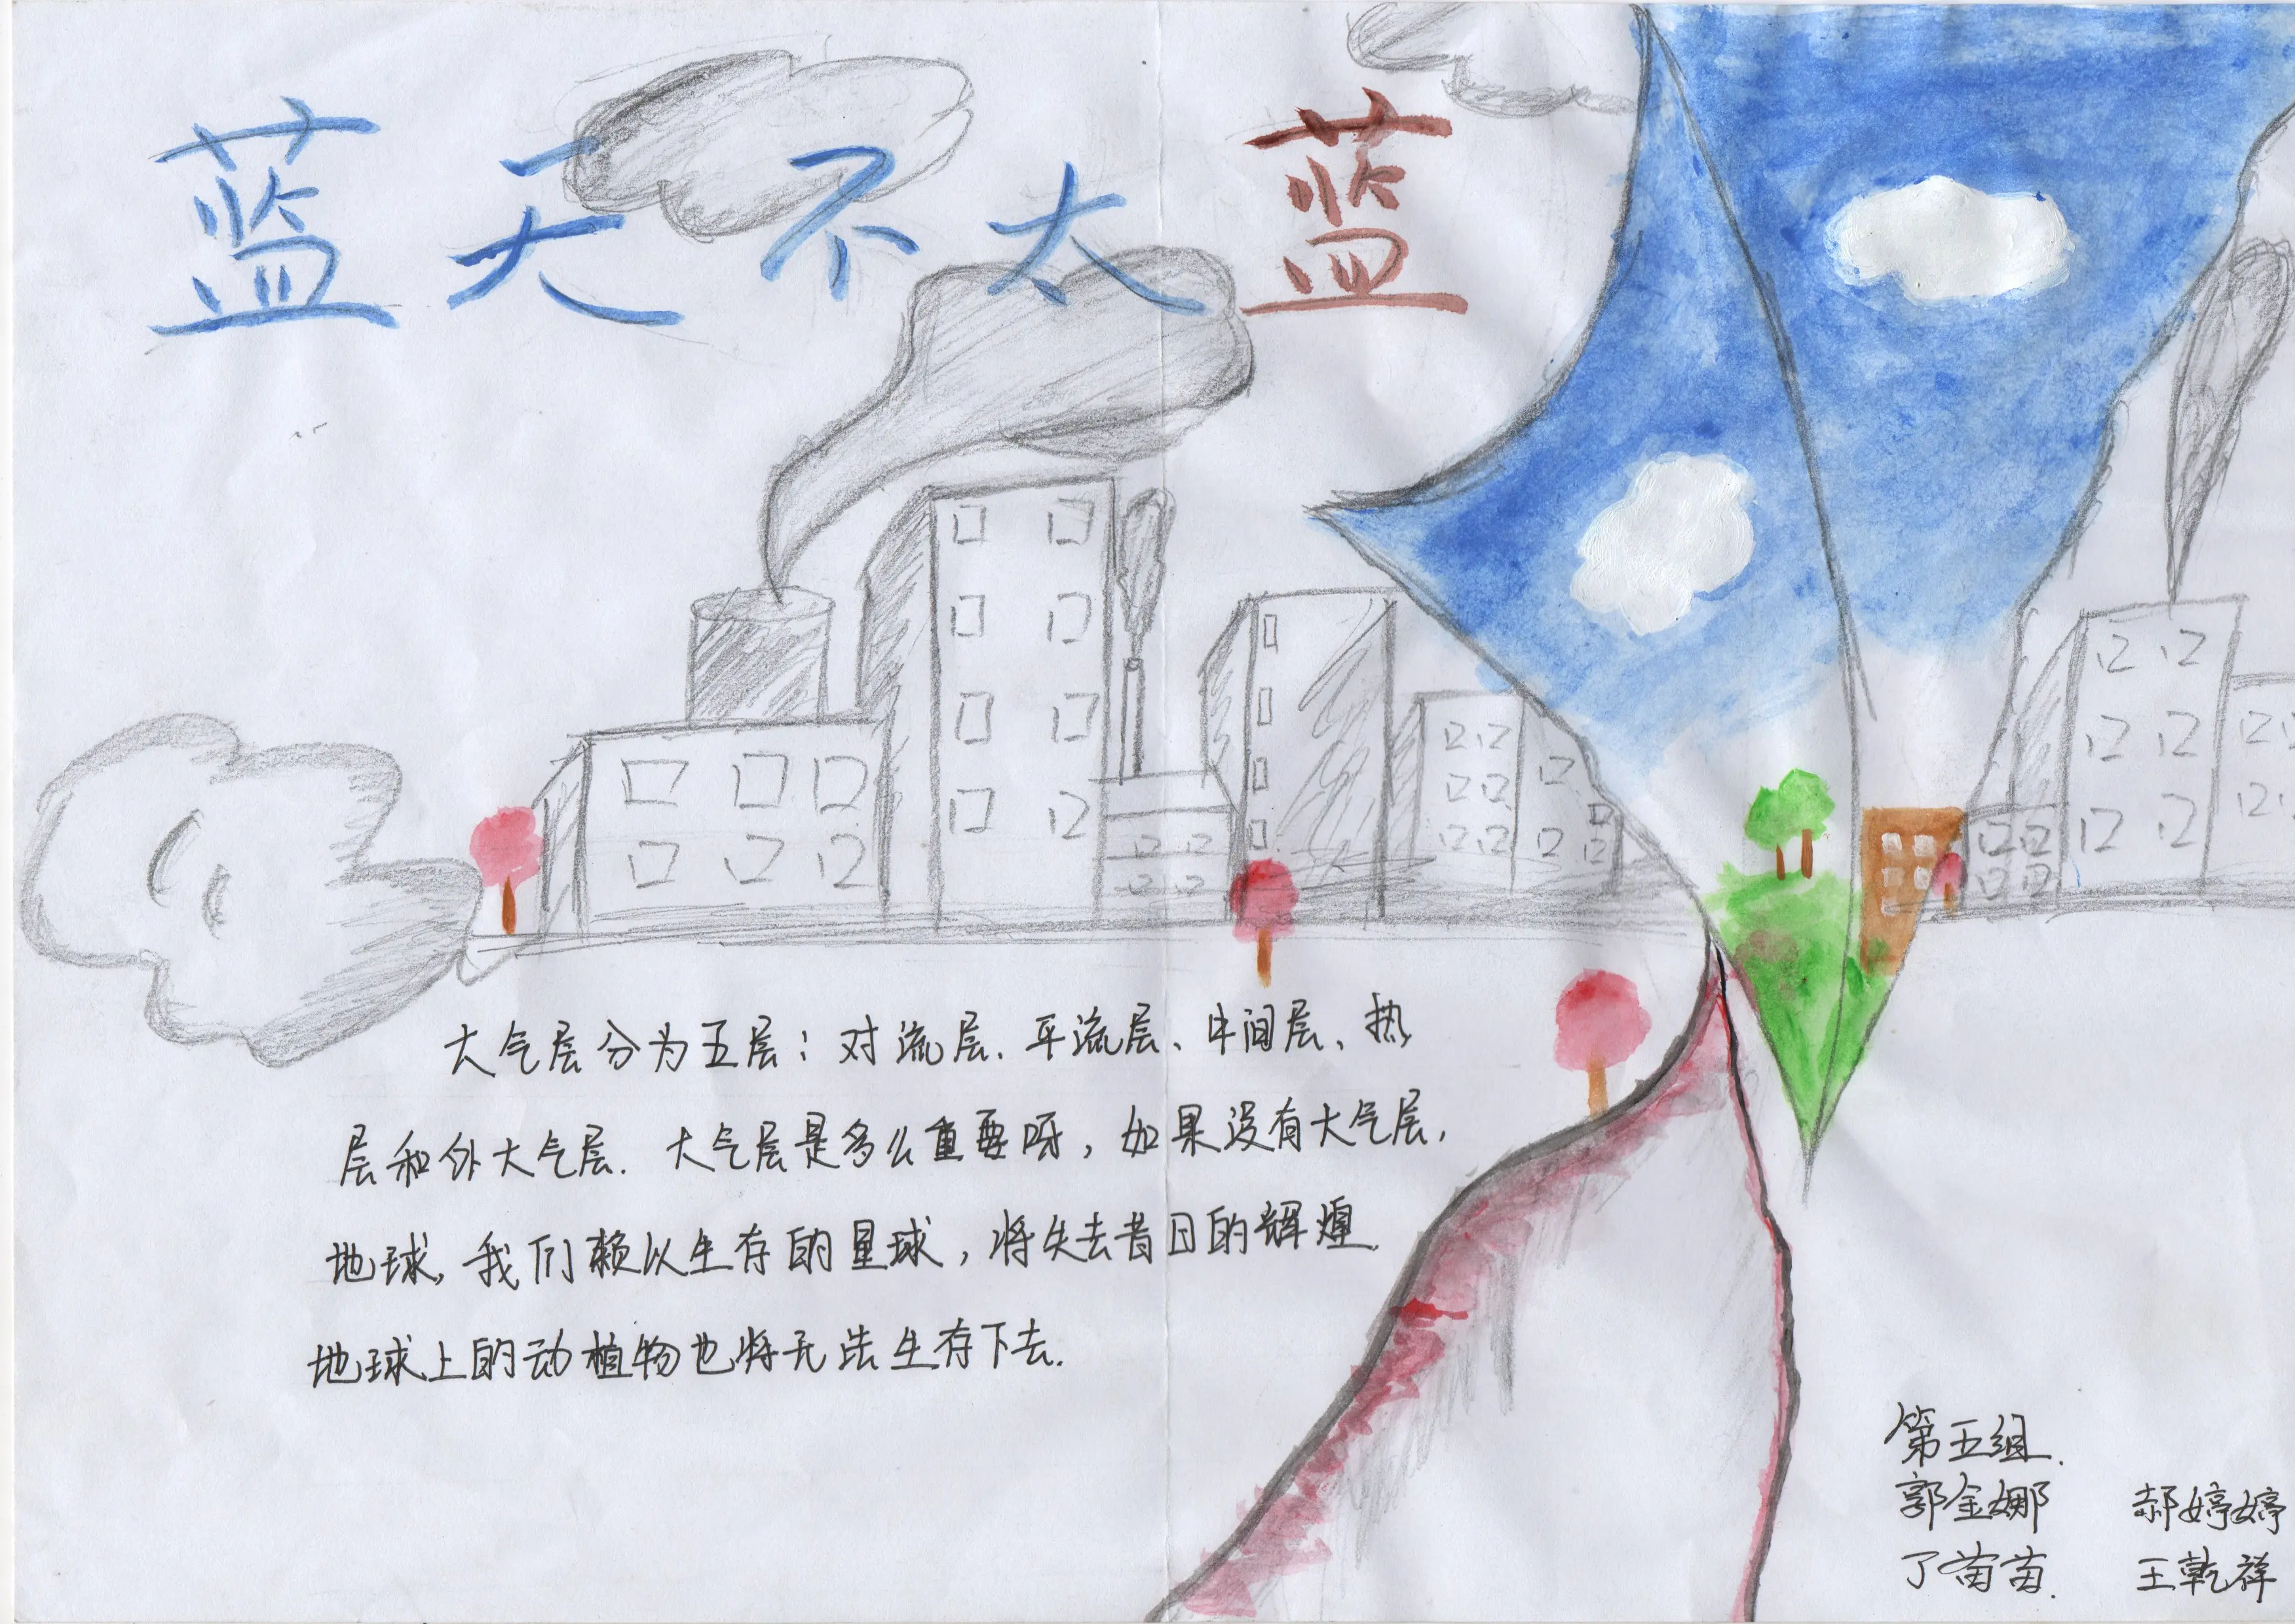 蓝天不太蓝
大气层分为五层：对流层、平流层、中间层、热
层和外大气层. 大气层是多么重要呀，如果没有大气层，
地球，我们赖以生存的星球，将失去昔日的辉煌.
地球上的动植物也将无法生存下去.
第五组.
郭金娜 郝婷婷
丁苗苗. 王乾祥